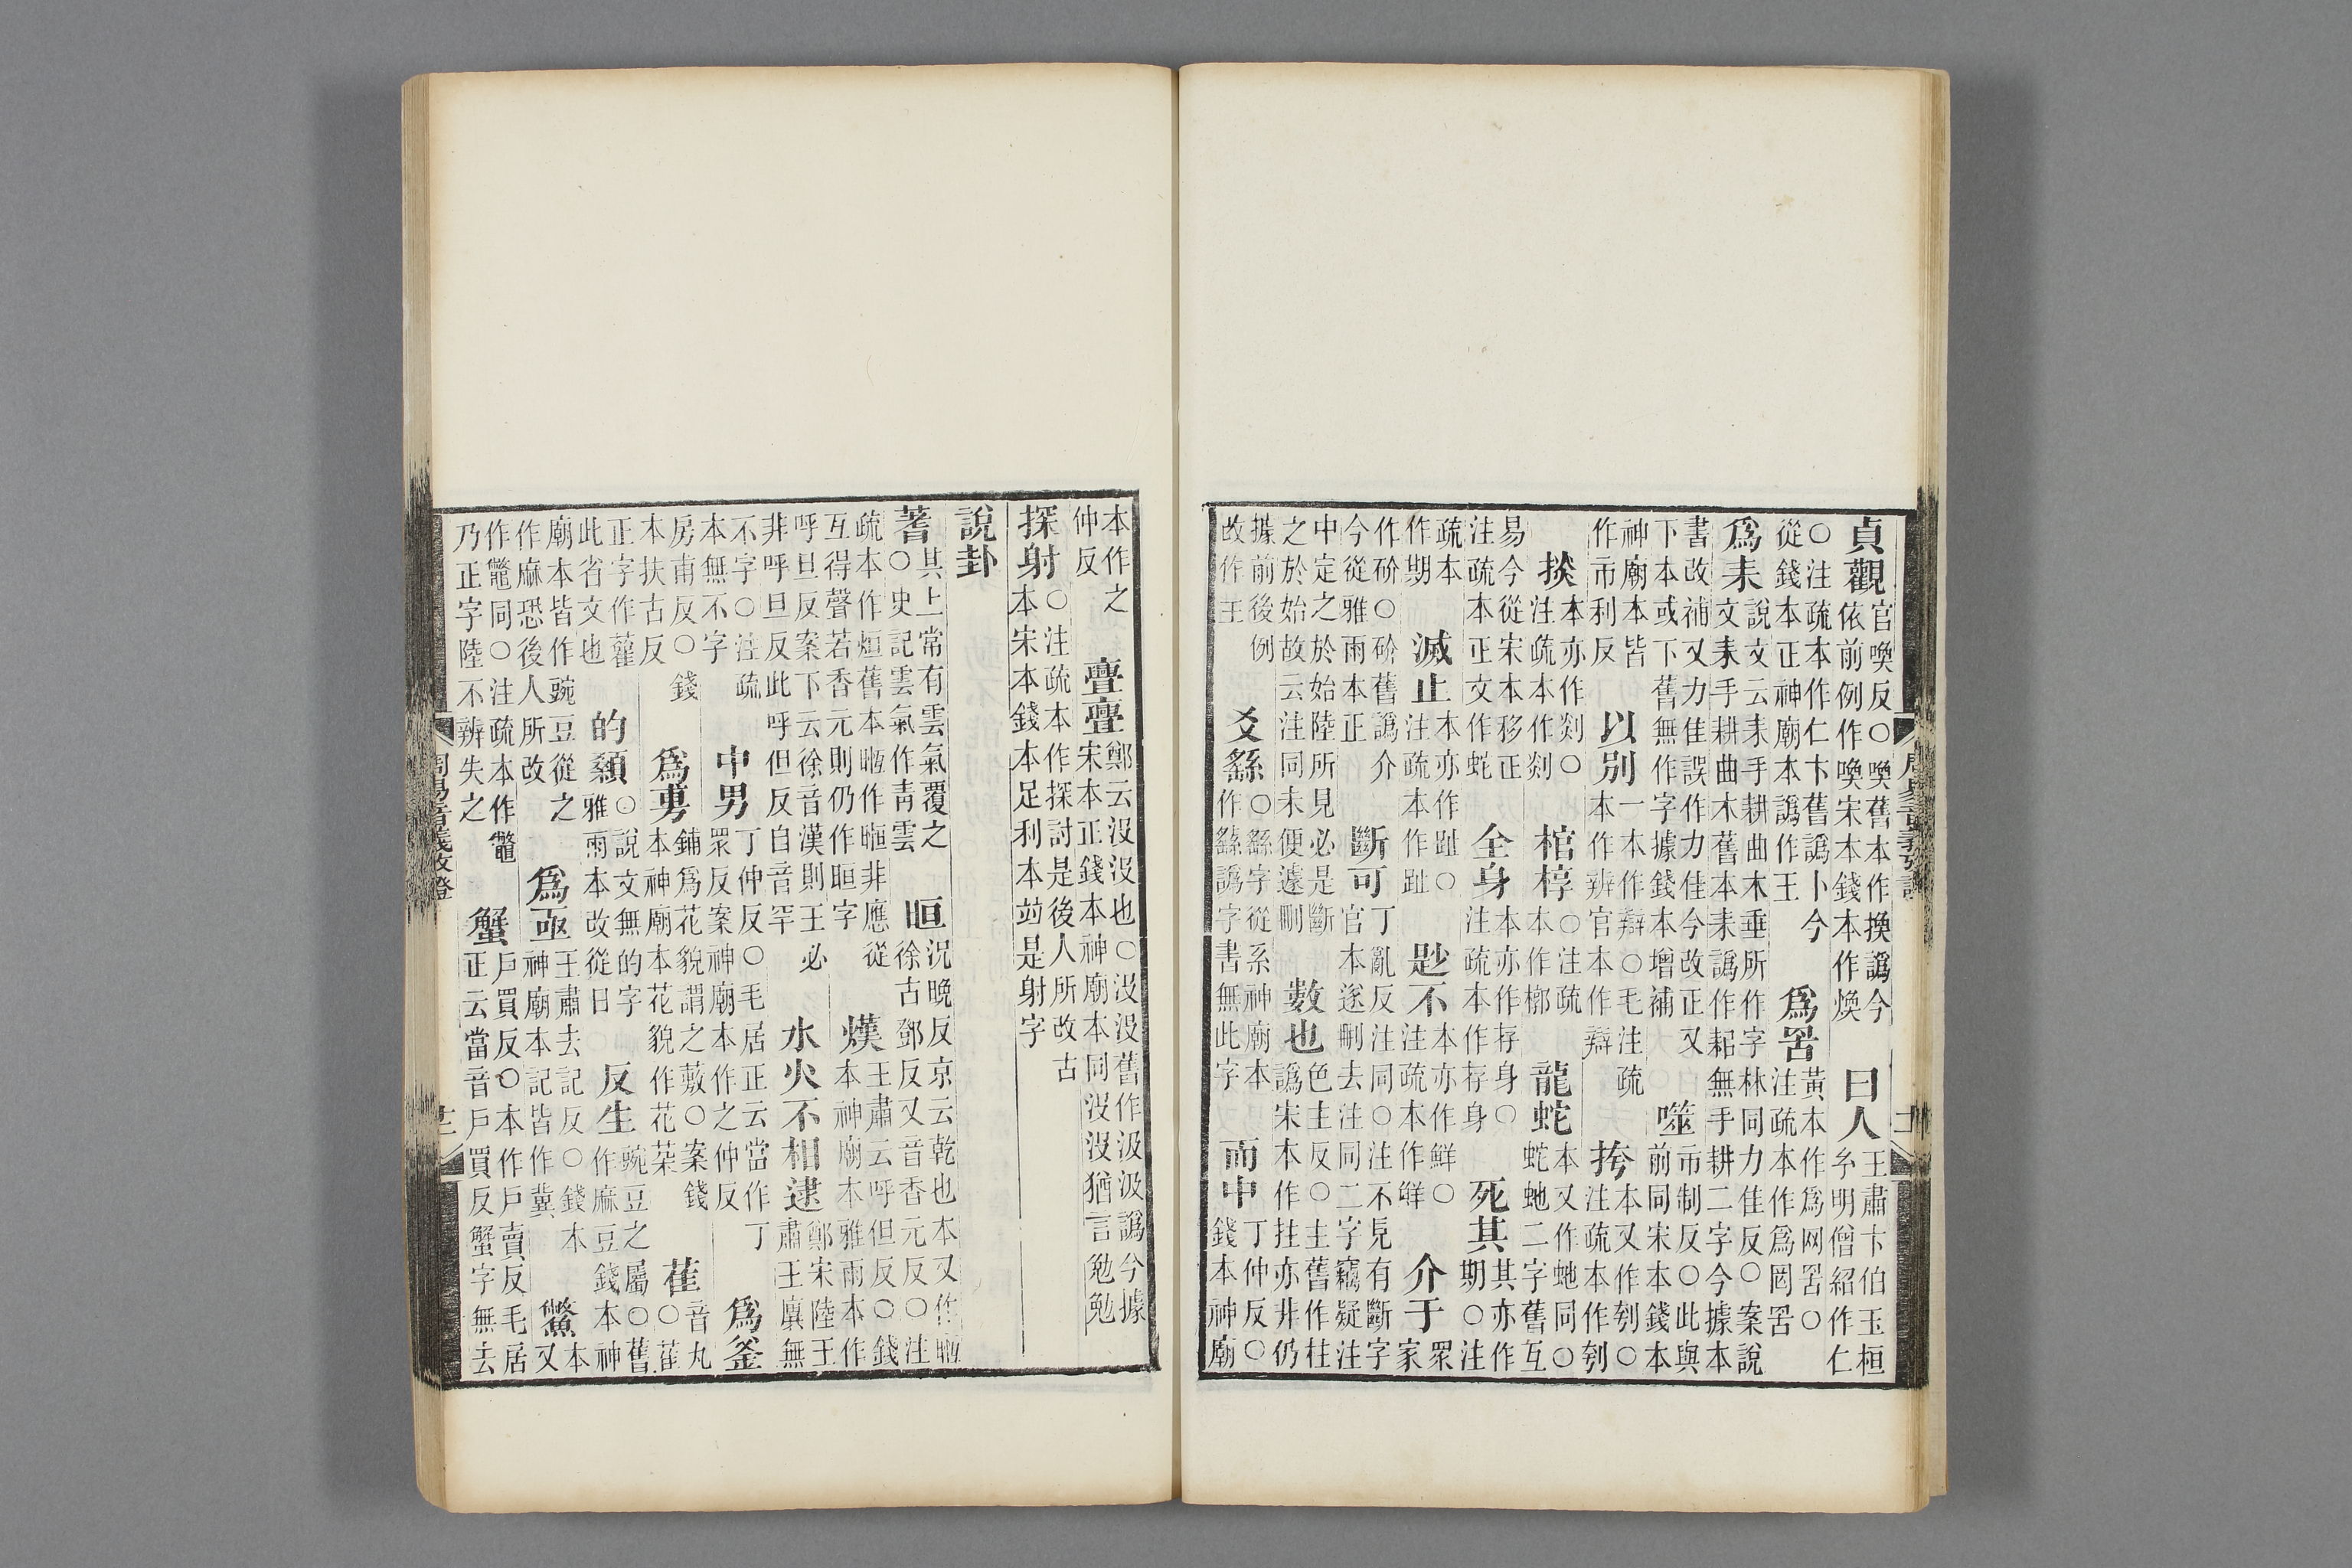 貞觀官喚反○喚舊本作換譌今依前例作喚宋本錢本作煥　曰人王肅卞伯玉桓玄明僧紹作仁
○注疏本作仁卞舊譌卜今從錢本正神廟本譌作王　爲罟黃本作爲网罟○注疏本作爲罔罟
爲耒說文云耒手耕曲木垂所作字林同力佳反○案說文耒手耕曲木舊本耒譌作耜無手耕二字今據本
書改補又力佳誤作力佳今改正又下本或下舊無作字據錢本增補　噬市制反○此與前同宋本錢本
神廟本皆作市利反　以別一本作辯○毛注疏本作辨官本作辯　挎本又作刳○注疏本作刳
掞本亦作剡○注疏本作剡　棺椁○注疏本作槨　龍蛇本又作虵同○蛇虵二字舊互
易今從宋本移正注疏本正文作蛇　全身本亦作存身○注疏本作存身　死其其亦作期○注
疏本作期　滅止本亦作趾○注疏本作趾　尟不本亦作鮮○注疏本作鮮　介于眾家
作砎○砎舊譌介今從雅雨本正　斷可丁亂反注同○注不見有斷字官本遂刪去注同二字竊疑注
中定之於始陸所見必是斷之於始故云注同未便遽刪　數也色主反○主舊作柱譌宋本作拄亦非仍
據前後例改作主　爻繇○繇字從系神廟本作繇譌字書無此字　而中丁仲反○錢本神廟
周易音義攷證
本作之仲反　亹亹鄭云沒沒也○沒沒舊作汲汲譌今據宋本正錢本神廟本同沒沒猶言勉勉
探射○注疏本作探討是後人所改古本宋本錢本足利本竝是射字
說卦
蓍其上常有雲氣覆之○史記雲氣作青雲　晅況晚反京云乾也本又作暅徐古鄧反又音香元反○注
疏本作烜舊本暅作暅非應從互得聲若香元則仍作晅字　熯王肅云呼但反○錢本神廟本雅雨本作
呼旦反案下云徐音漢則王必非呼旦反此呼但反白音罕　水火不相逮鄭宋陸王肅王廙無
不字○注疏本無不字　中男丁仲反○毛居正云當作丁眾反案神廟本作之仲反　爲釜
房甫反○錢本扶古反　爲旉鋪爲花貌謂之蔈○案錢本神廟本花貌作花朶　萑音丸○萑
正字作雚此省文也　的顙○說文無的字雅雨本改從日　反生豌豆之屬○舊作麻豆錢本神
廟本皆作豌豆從之作麻恐後人所改　爲亟王肅去記反○錢本神廟本記皆作冀　鱉本又
作鼈同○注疏本作鼈乃正字陸不辨失之　蟹戶買反○本作戶賣反毛居正云當音戶買反蟹字無去
周易音義攷證